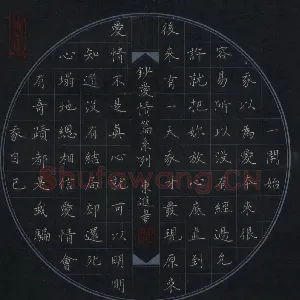 一開始
以為愛本來很
容易所以沒經過允
許就把妳心底直到
後來有一天才發現原來
鈔愛情篇系列 東進書
愛情不是真心就可以明明
知道沒有結局卻還死
心塌地總相信愛情會
有奇蹟都是我騙
自己
Shufawang.CN